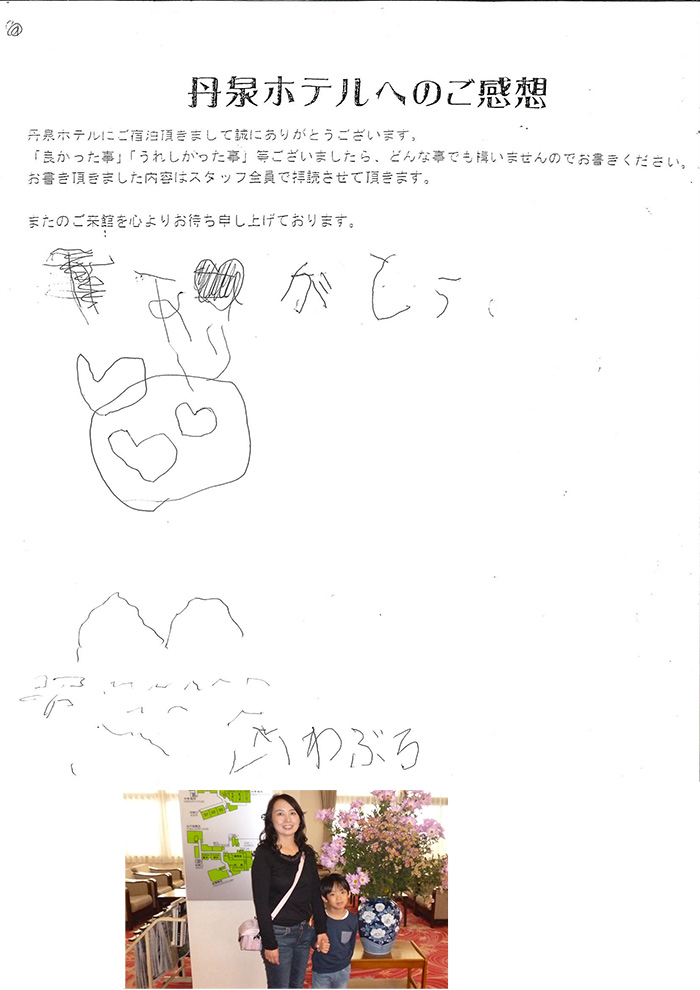 丹泉ホテルへのご感想
丹泉ホテルにご宿泊頂きまして誠にありがとうございます。
「良かった事」「うれしかった事」等ございましたら、どんな事でも構いませんのでお書きください。
お書き頂きました内容はスタッフ全員で拝読させて頂きます。
またのご来館を心よりお待ち申し上げております。
ありがとう。